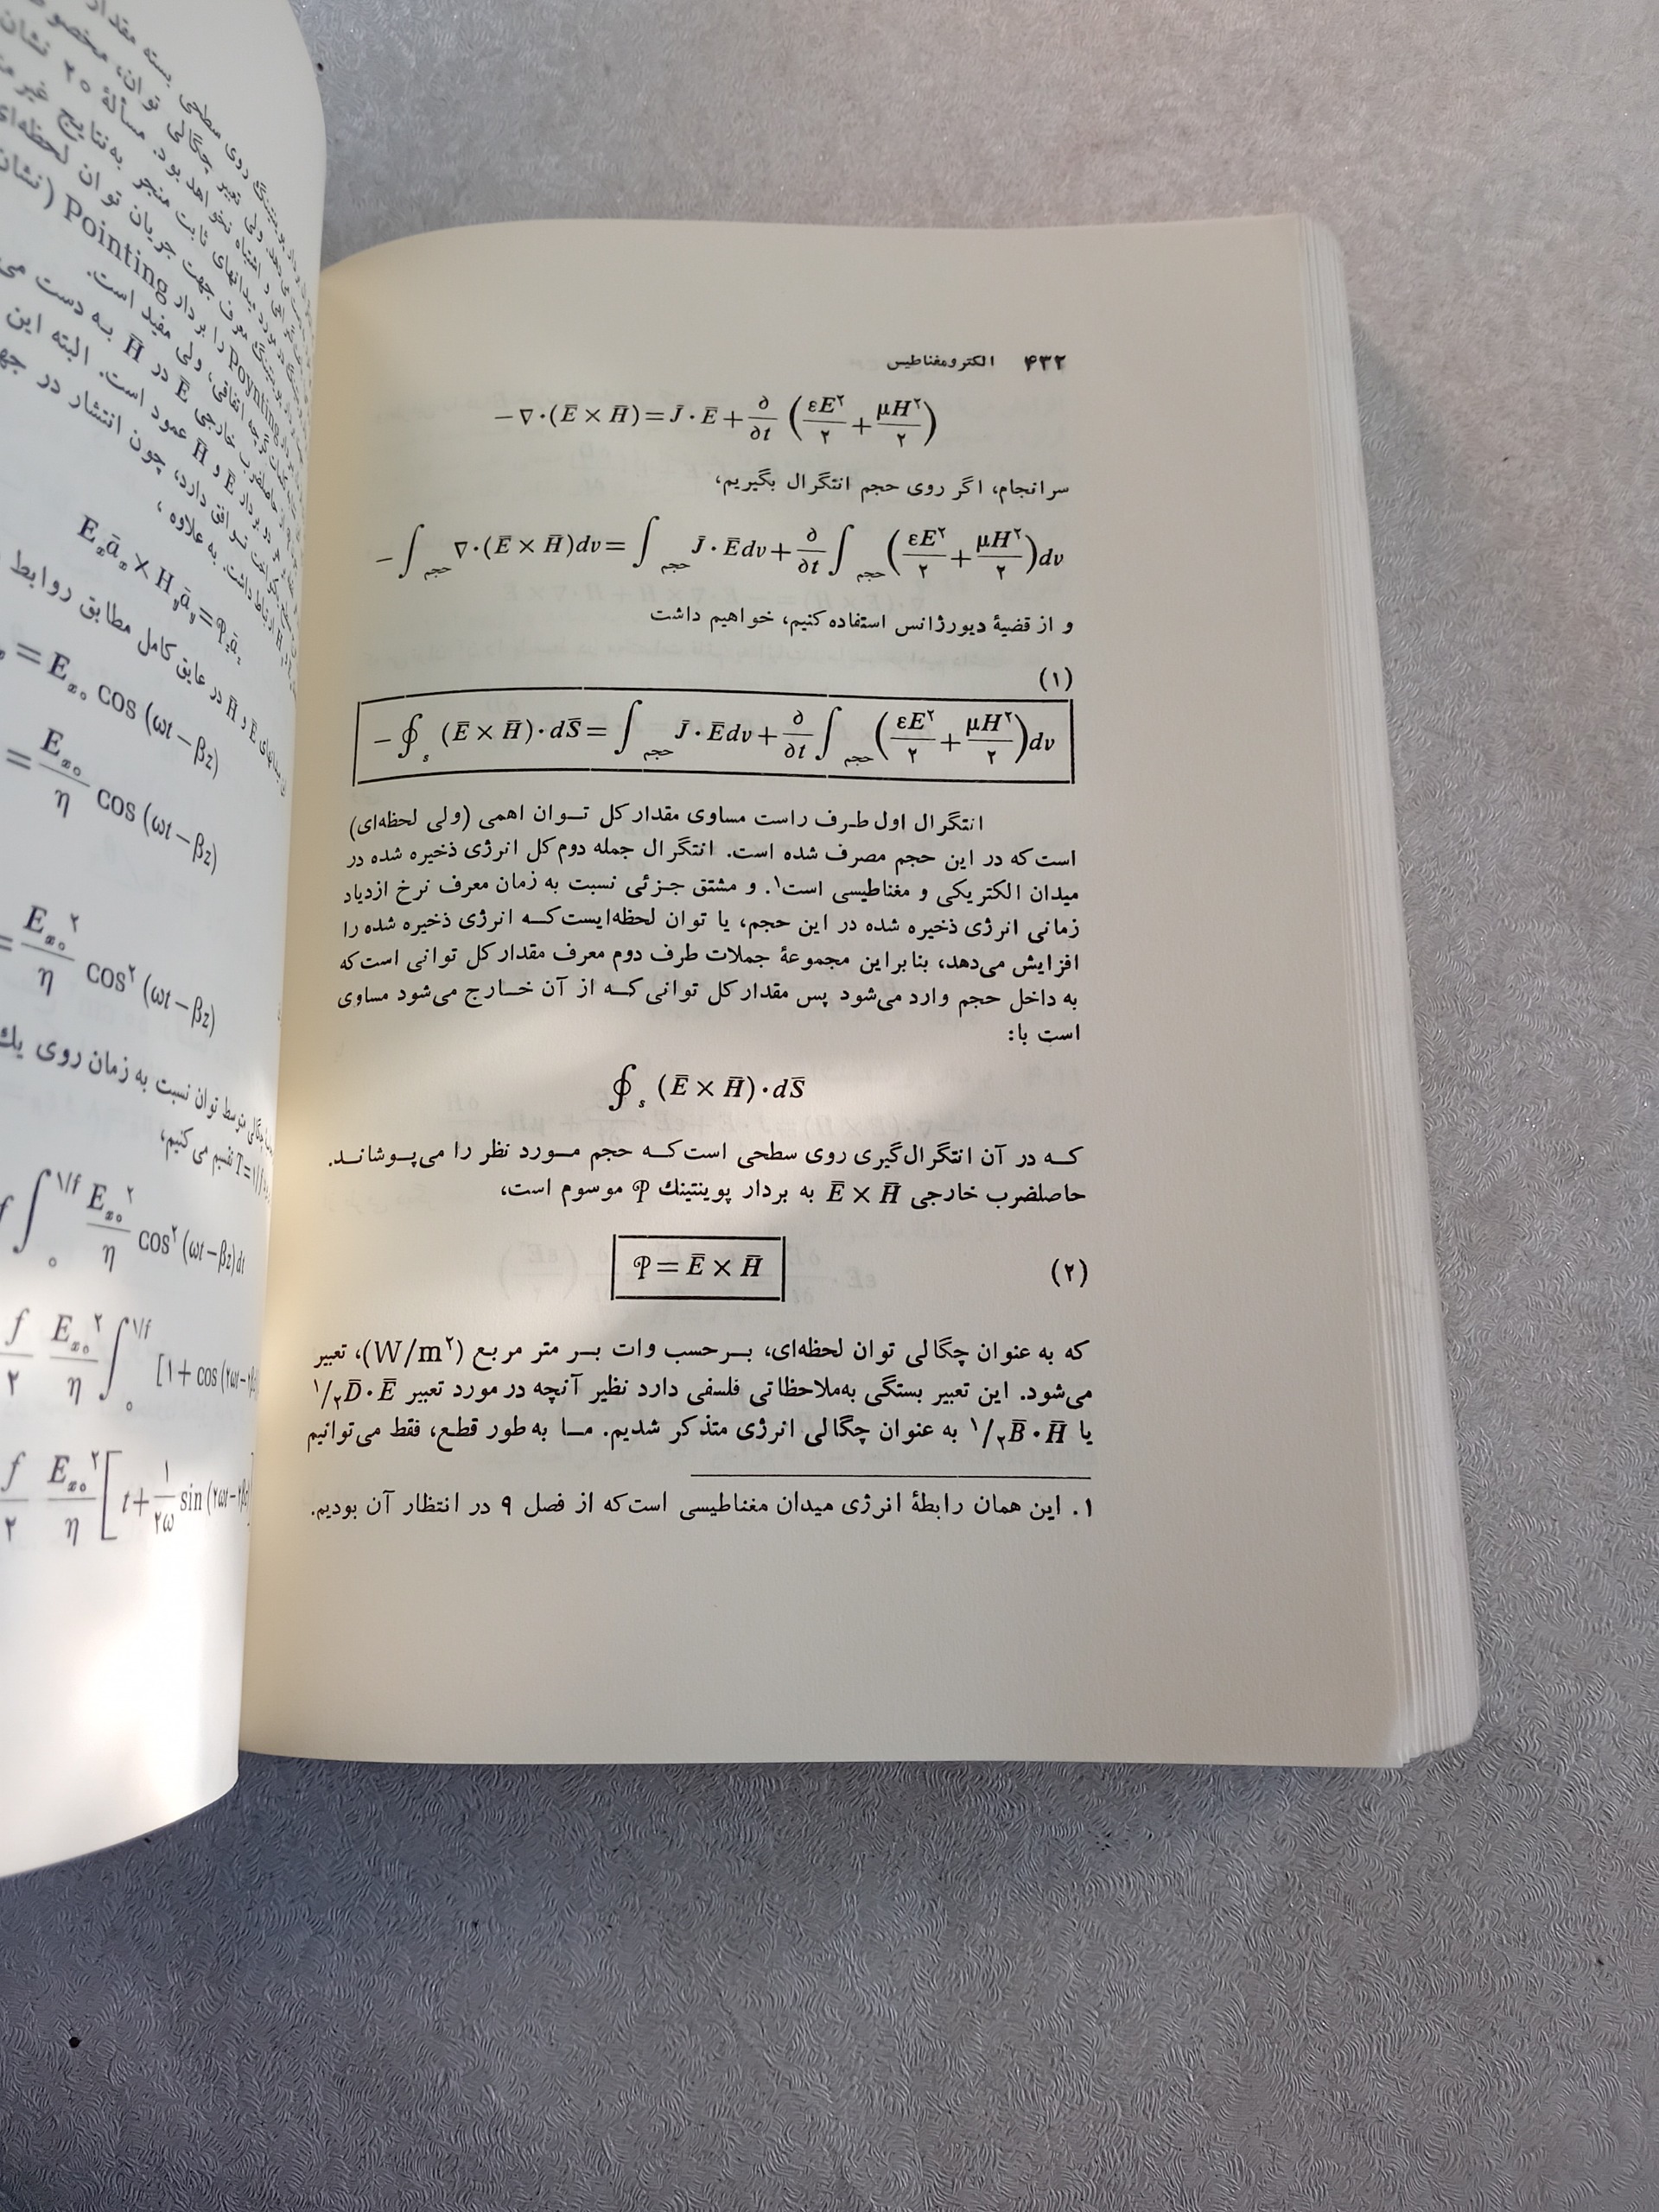 ۴۳۲ الکترومغناطیس
−∇·(Ē × H̄) = J̄·Ē + ∂/∂t (εE²/۲ + μH²/۲)
سرانجام، اگر روی حجم انتگرال بگیریم،
−∫حجم ∇·(Ē × H̄)dv = ∫حجم J̄·Ēdv + ∂/∂t ∫حجم (εE²/۲ + μH²/۲)dv
و از قضیهٔ دیورژانس استفاده کنیم، خواهیم داشت
(۱)
−∮s (Ē × H̄)·dS̄ = ∫حجم J̄·Ēdv + ∂/∂t ∫حجم (εE²/۲ + μH²/۲)dv
انتگرال اول طرف راست مساوی مقدار کل توان اهمی (ولی لحظه‌ای)
است که در این حجم مصرف شده است. انتگرال جمله دوم کل انرژی ذخیره شده در
میدان الکتریکی و مغناطیسی است۱. و مشتق جزئی نسبت به زمان معرف نرخ ازدیاد
زمانی انرژی ذخیره شده در این حجم، یا توان لحظه‌ایست که انرژی ذخیره شده را
افزایش می‌دهد، بنابراین مجموعهٔ جملات طرف دوم معرف مقدار کل توانی است که
به داخل حجم وارد می‌شود پس مقدار کل توانی که از آن خارج می‌شود مساوی
است با:
∮s (Ē × H̄)·dS̄
که در آن انتگرال‌گیری روی سطحی است که حجم مورد نظر را می‌پوشاند.
حاصلضرب خارجی Ē × H̄ به بردار پوینتینك 𝒫 موسوم است،
𝒫 = Ē × H̄ (۲)
که به عنوان چگالی توان لحظه‌ای، برحسب وات بر متر مربع (W/m²)، تعبیر
می‌شود. این تعبیر بستگی به‌ملاحظاتی فلسفی دارد نظیر آنچه در مورد تعبیر ۱/۲D̄·Ē
یا ۱/۲B̄·H̄ به عنوان چگالی انرژی متذکر شدیم. ما به طور قطع، فقط می‌توانیم
۱. این همان رابطهٔ انرژی میدان مغناطیسی است که از فصل ۹ در انتظار آن بودیم.
Pointing (نشان
Eₓāₓ × Hᵧāᵧ = 𝒫_z ā_z
= Eₓ₀ cos (ωt − βz)
= Eₓ₀/η cos (ωt − βz)
= Eₓ₀²/η cos² (ωt − βz)
f ∫₀^۱/f Eₓ₀²/η cos² (ωt − βz)dt
f/۲ Eₓ₀²/η ∫₀^۱/f [۱ + cos (۲ωt −
f/۲ Eₓ₀²/η [t + ۱/۲ω sin (۲ωt −